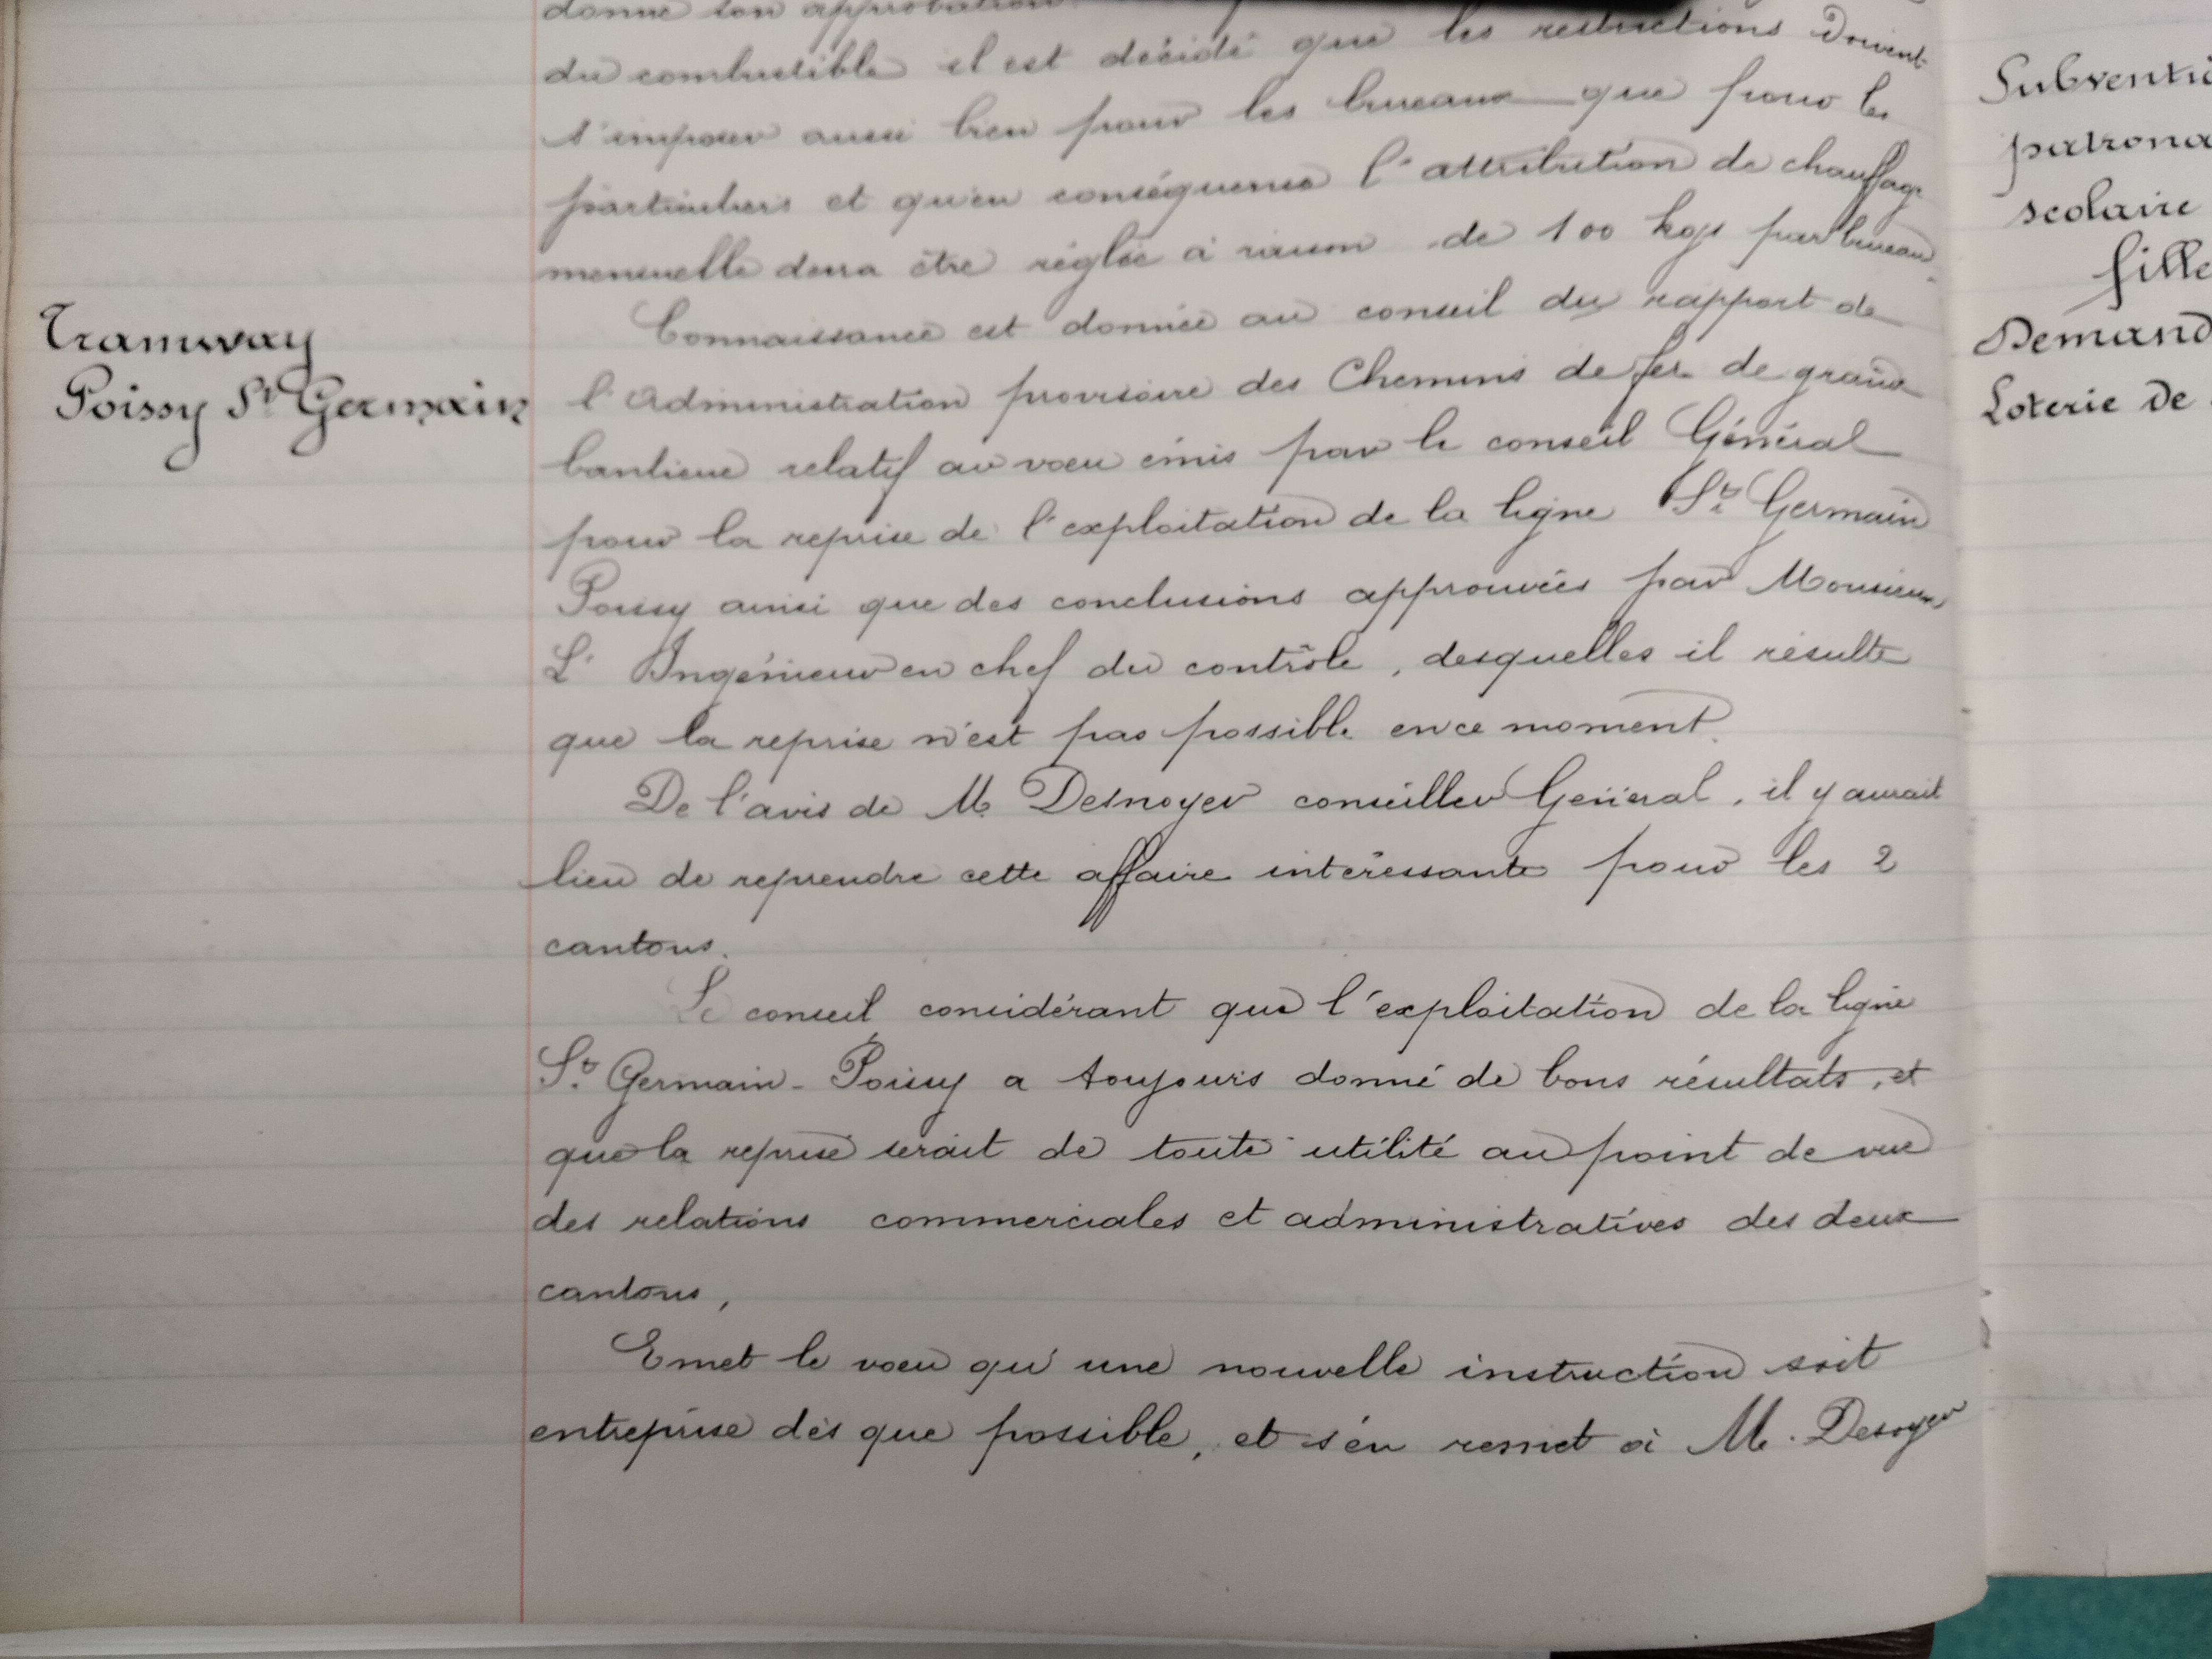 donne son approbation
du combustible il est décidé que les restrictions doivent
s'imposer aussi bien pour les bureaux que pour les
particuliers et qu'en conséquence l'attribution de chauffage
mensuelle devra être réglée à raison de 100 kgs par bureau.
Tramway
Poissy St Germain
Connaissance est donnée au conseil du rapport de
l'Administration provisoire des Chemins de fer de grande
banlieue relatif au vœu émis par le conseil Général
pour la reprise de l'exploitation de la ligne St Germain
Poissy ainsi que des conclusions approuvées par Monsieur
L'Ingénieur en chef du contrôle, desquelles il résulte
que la reprise n'est pas possible en ce moment.
De l'avis de M. Desnoyer conseiller Général, il y aurait
lieu de reprendre cette affaire intéressante pour les 2
cantons.
Le conseil considérant que l'exploitation de la ligne
St Germain-Poissy a toujours donné de bons résultats, et
que la reprise serait de toute utilité au point de vue
des relations commerciales et administratives des deux
cantons,
Emet le vœu qu'une nouvelle instruction soit
entreprise dès que possible, et s'en remet à M. Desoyer
Subventi
patrona
scolaire
fille
Demand
Loterie de